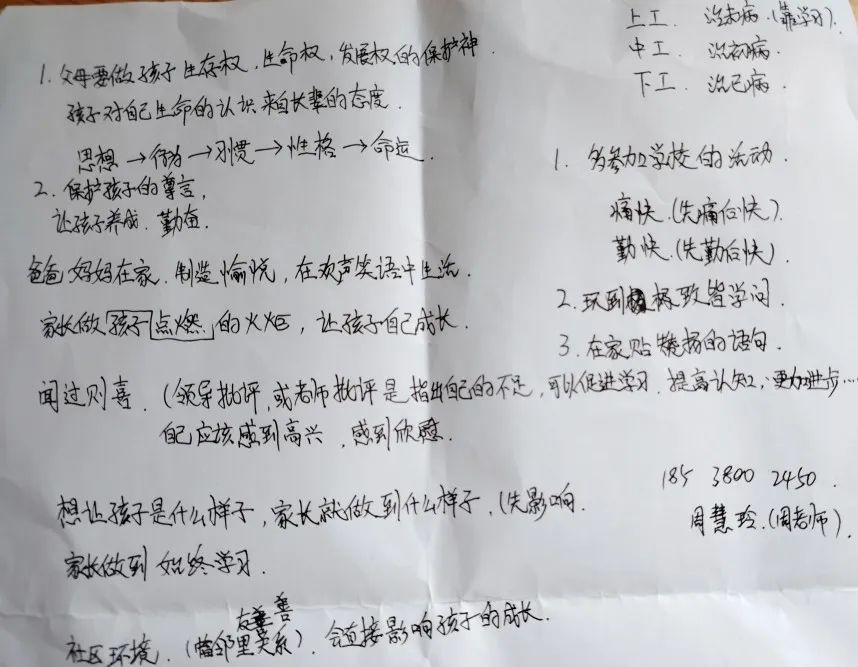 1. 父母要做孩子生存权,生命权,发展权的保护神.
孩子对自己生命的认识来自长辈的态度.
思想→行为→习惯→性格→命运.
2. 保护孩子的尊言,
让孩子养成.勤奋.
爸爸妈妈在家.制造愉悦,在欢声笑语中生活.
家长做孩子点燃的火炬,让孩子自己成长.
闻过则喜.(领导批评,或老师批评是指出自己的不足,可以促进学习.提高认知,更加进步…
自己应该感到高兴,感到欣慰.
想让孩子是什么样子,家长就做到什么样子,(先影响.
家长做到始终学习.
社区环境.(邻里关系).会直接影响孩子的成长.
友善
上工.治未病.(靠学习).
中工.治初病.
下工.治已病.
1. 多参加学校的活动.
痛快.(先痛后快).
勤快.(先勤后快).
2. 玩到极致皆学问.
3. 在家贴表扬的语句.
185 3800 2450.
周慧玲.(周老师).